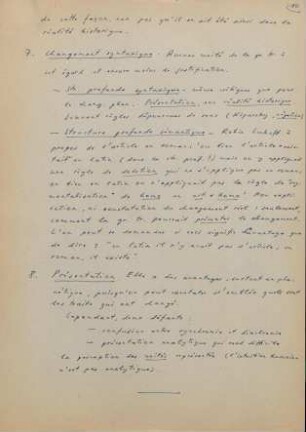 de cette façon, non pas qu'il en ait été ainsi dans la
réalité historique.
7. Changement syntaxique. Aucune unité de la gr. tr. à
cet égard et encore moins de justification.
— Str. profonde syntaxique — même critique que pour
le chang. phon. Présentation, non réalité historique
Souvent règles dépourvues de sens
— Structure profonde sémantique — Robin Lakoff à
propos de l'article en roman : ou bien l'article exis-
tait en latin (dans la str. prof.!) mais on y appliquait
une règle de deletion, qui ne s'applique pas en roman,
ou bien en latin on n'appliquait pas la règle de "seg-
mentalisation" de homo en art. + homo. Ni expli-
cation, ni constatation du changement réel ; seulement,
comment la gr. tr. pourrait présenter le changement.
L'on peut se demander si cela signifie davantage que
de dire : "en latin il n'y avait pas d'article, en
roman, il existe"
8. Présentation. Elle a des avantages, surtout en pho-
nétique, puisqu'on peut constater d'emblée quels sont
les traits qui ont changé.
Cependant, deux défauts :
— confusion entre synchronie et diachronie
— présentation analytique qui rend difficile
la perception des unités représentées (l'intuition humaine
n'est pas analytique).